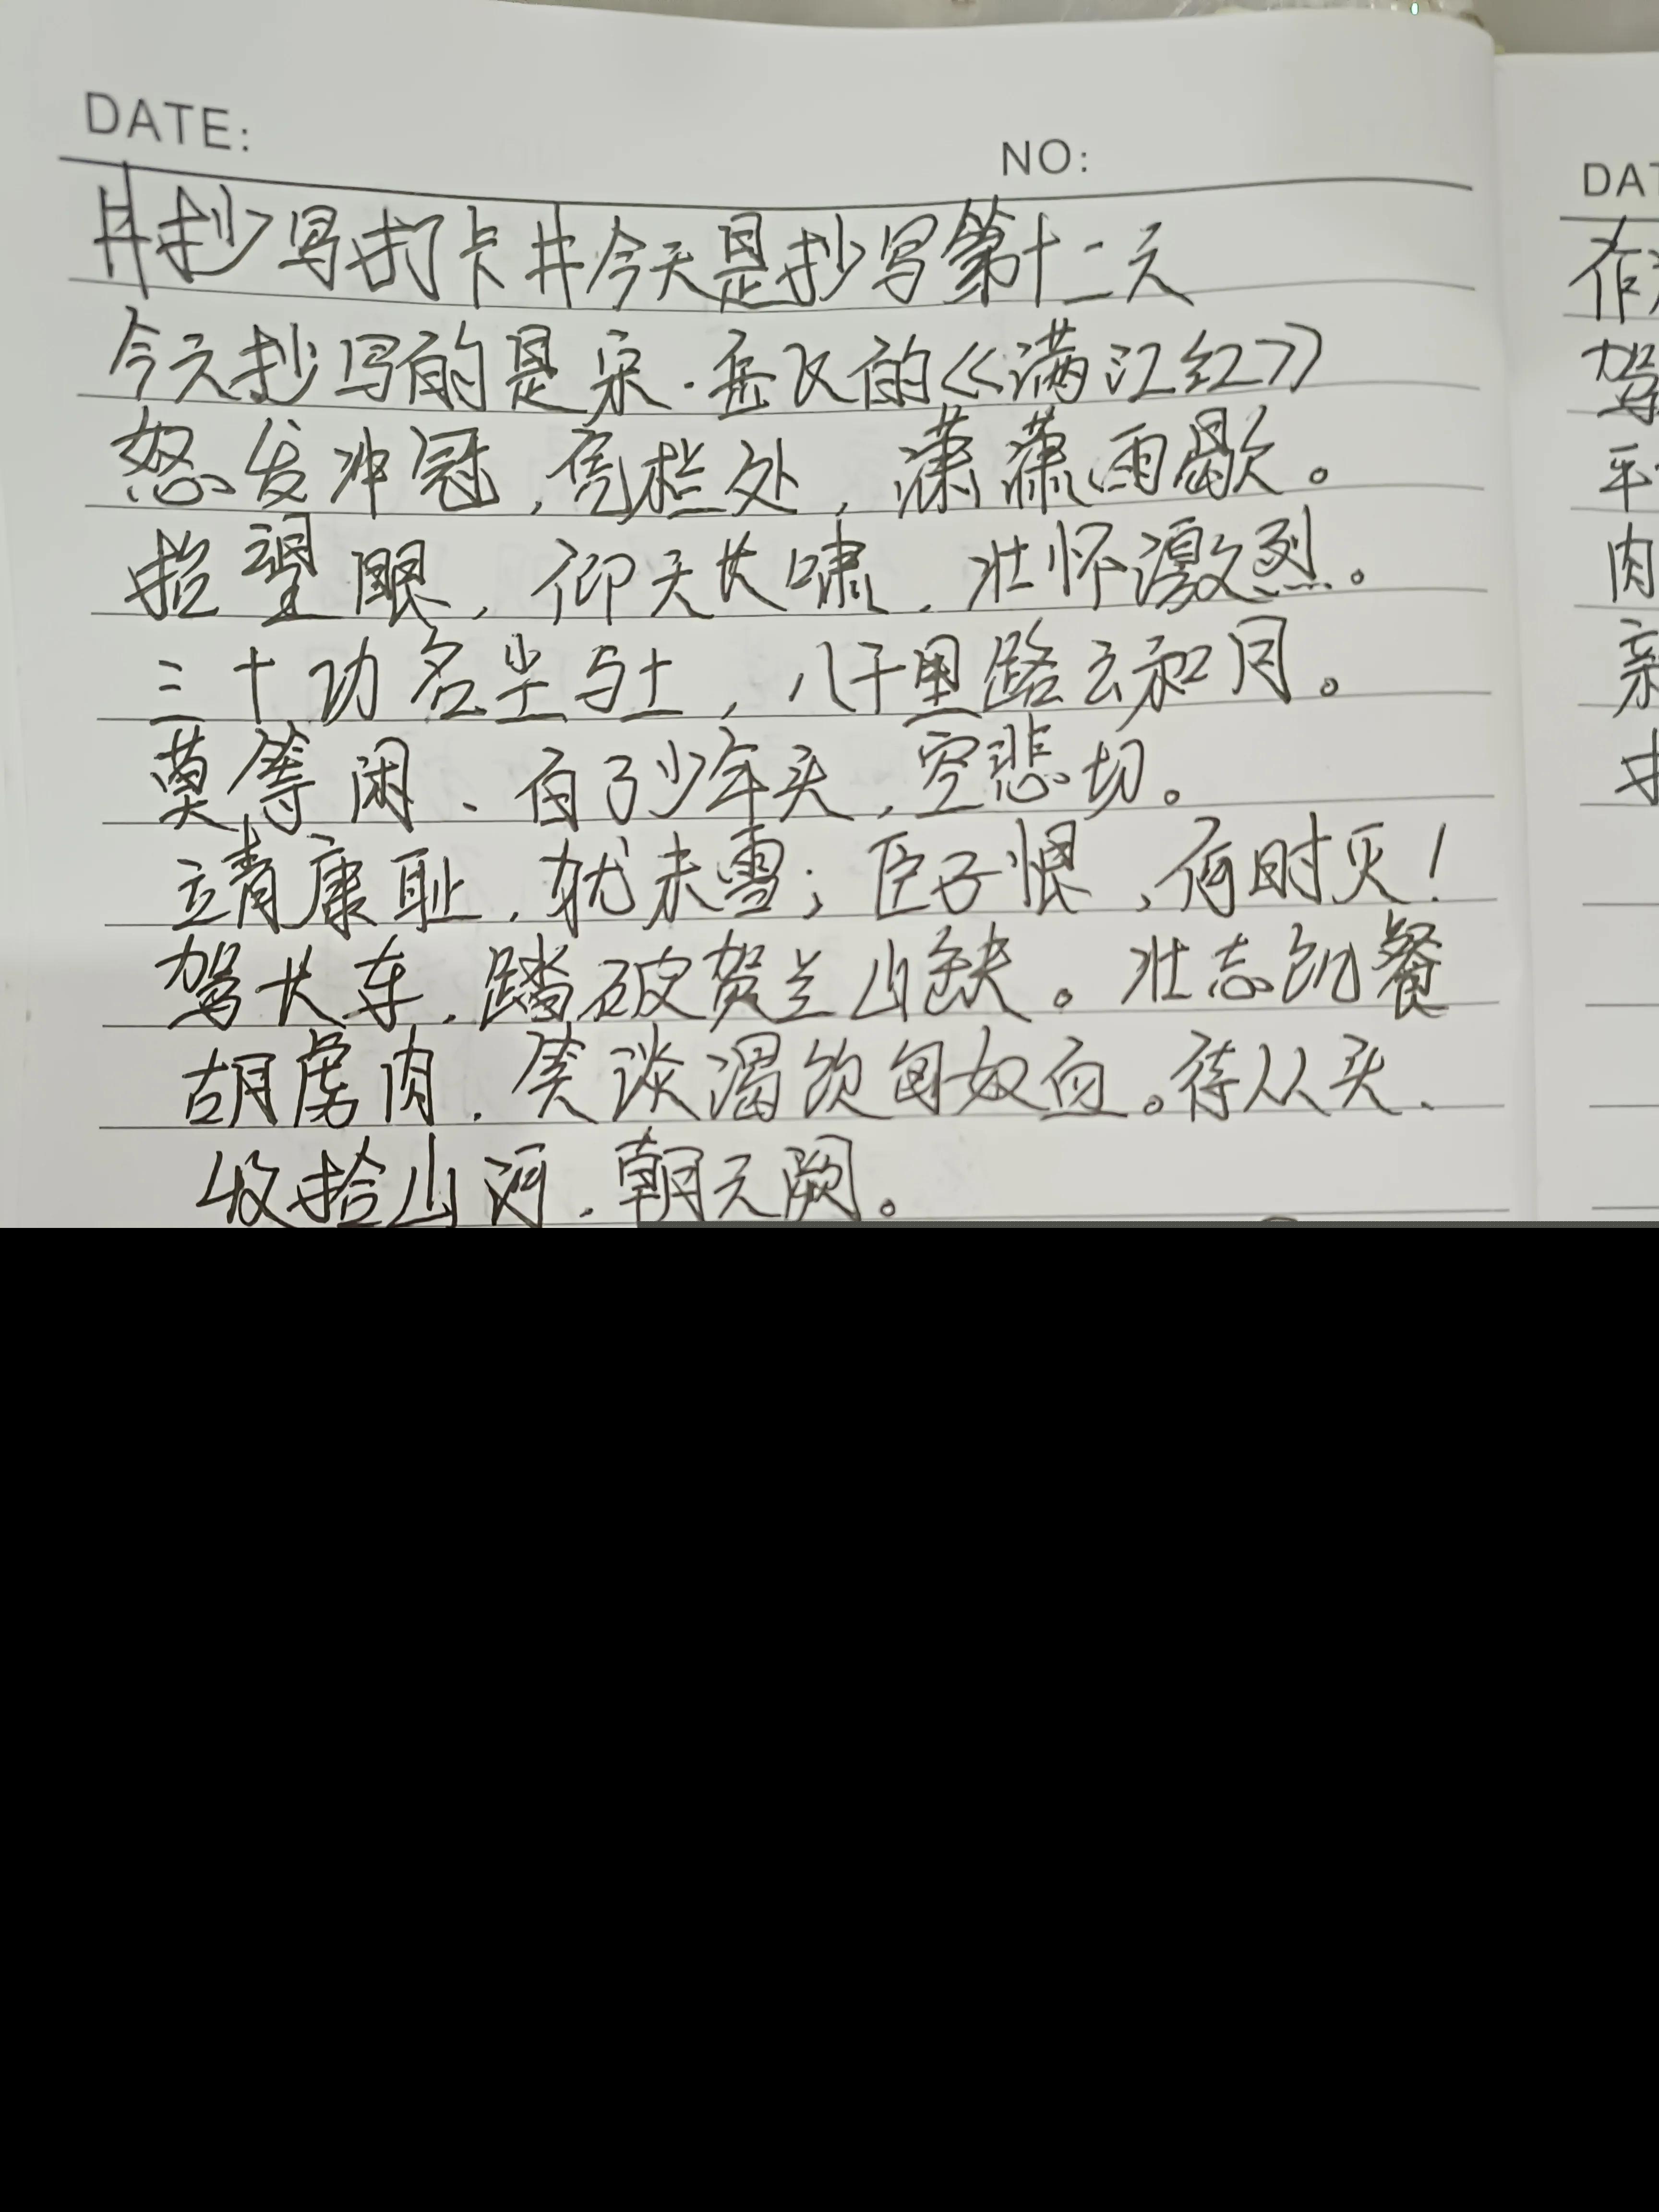 DATE:
NO:
#抄写打卡#今天是抄写第十二天
今天抄写的是宋·岳飞的《满江红》
怒发冲冠，凭栏处，潇潇雨歇。
抬望眼，仰天长啸，壮怀激烈。
三十功名尘与土，八千里路云和月。
莫等闲、白了少年头，空悲切。
靖康耻，犹未雪；臣子恨，何时灭！
驾长车，踏破贺兰山缺。壮志饥餐
胡虏肉，笑谈渴饮匈奴血。待从头、
收拾山河，朝天阙。
DAT
驾
平
肉